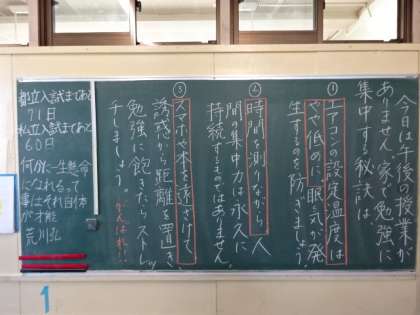 今日は午後の授業が
ありません。家で勉強に
集中する秘訣は、
①
エアコンの設定温度は
やや低めに、眠気が発
生するのを防ぎましょう。
②
時間を測りながら 人
間の集中力は永久に
持続するものではありません。
③
スマホや本を遠ざけて、
誘惑から距離を置き、
勉強に飽きたらストレッ
チしましょう。がんばれ!!
都立入試まであと
71日
私立入試まであと
60日
何かに一生懸命
になれるって
事はそれ自体
が才能
荒川弘
1